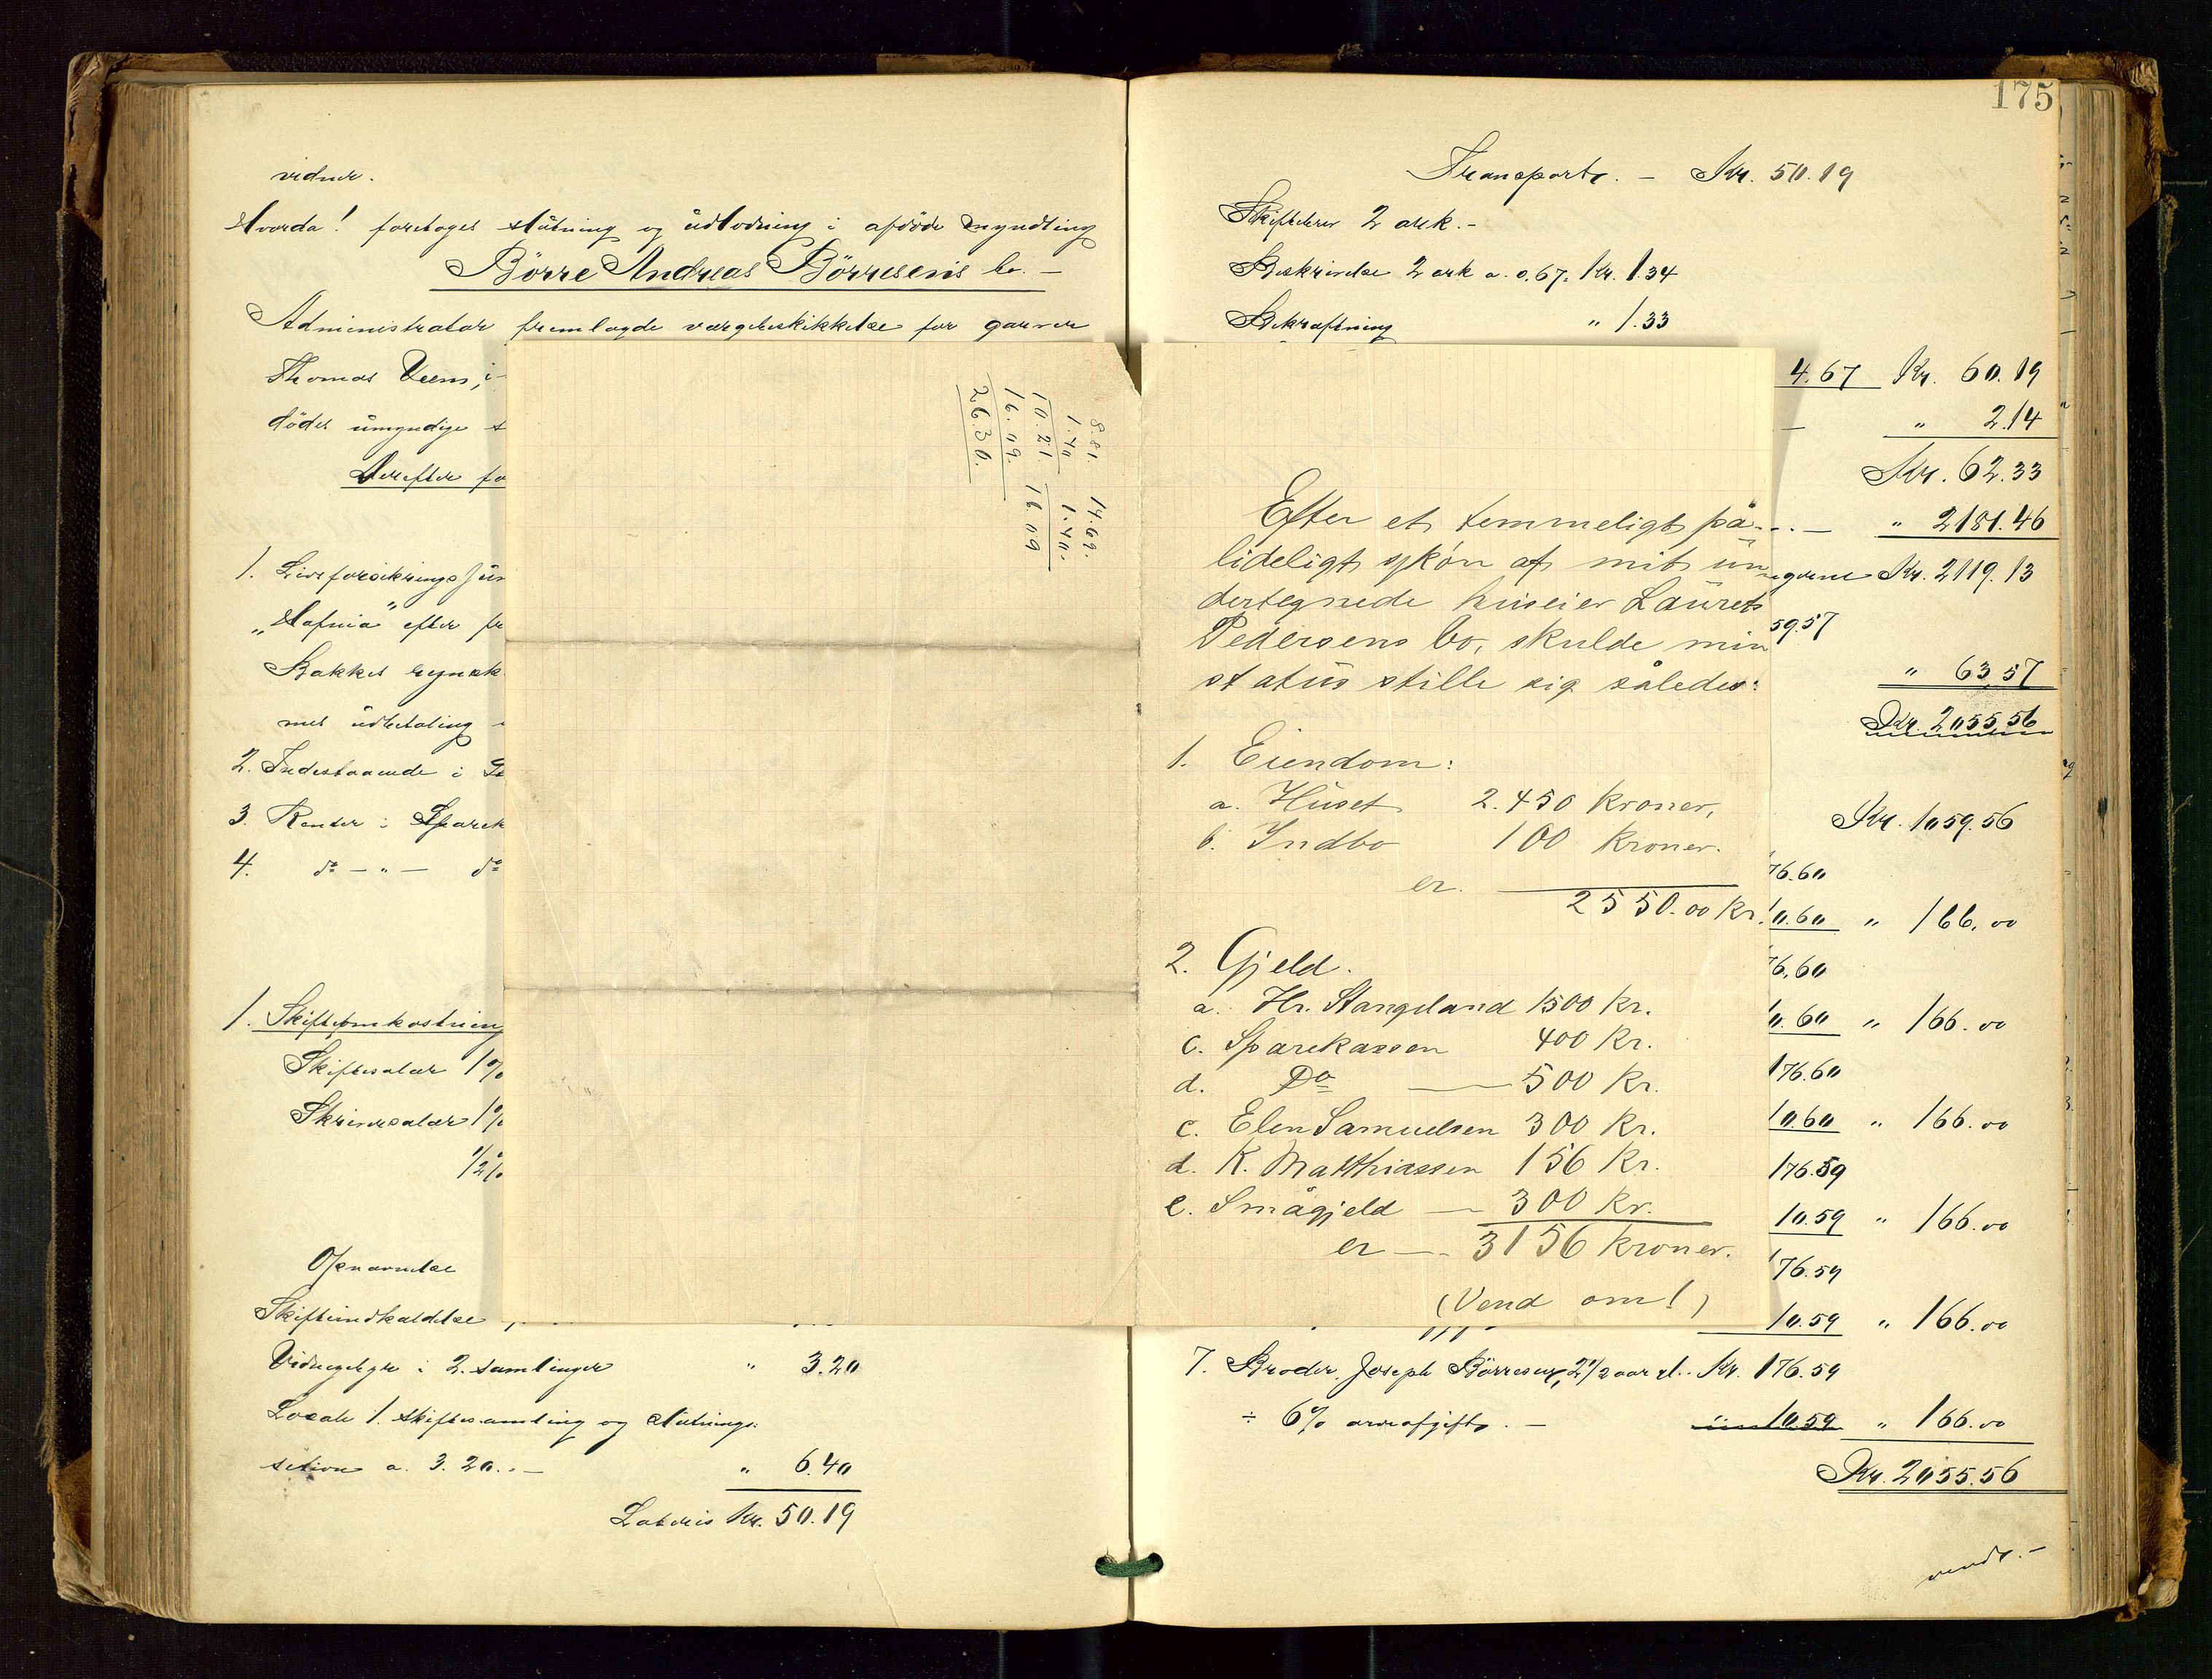 vidner.
Hvorda! foretoges slutning og udlodning i afdöde myndling
Börre Andreas Börresens bo. —
Administrator fremlagde værgebeskikkelse for garver
Thomas Veem, i
dödes umyndige s
Derefter fo
1. Livsforsikrings
„Hafnia" efter fr
Bakkes regnsk
mes udbetaling
2. Indestaaende i
3. Renter i Sparek
4. do — „ — do
1. Skifteomkostning
Skiftesalær 1%
Skriversalær 1%
1/2%
Opnævnelse
Skifteindkaldelse
Vidnegebyr i 2. samlinger „ 3.20
Locale 1. skiftesamling og slutnings-
sction a. 3.20.. — „ 6.40
Lateris Kr. 50.19
8.81 14.69.
1.40 1.40.
10.21. 16.09
16.09.
26.30.
175
Transport. — Kr. 50.19
Skiftebrev 2 ark. -
Beskrivelse 2 ark a. 0.67. Kr. 1.34
Bekræftning „ 1.33
4.67 Kr. 60.19
— „ 2.14
Kr. 62.33
— „ 2181.46
Kr. 2119.13
59.57
„ 63.57
Kr. 2055.56
Kr. 1059.56
76.60
10.60 „ 166.00
76.60
10.60 „ 166.00
176.60
10.60 „ 166.00
176.59
10.59 „ 166.00
176.59
10.59 „ 166.00
7. Broder, Joseph Börresen, 2 1/2 aar gl.. Kr. 176.59
÷ 6% arveafgift. — 10.59 „ 166.00
Kr. 2055.56
vendt. —
Efter et temmeligt på-
lideligt skön af mit un
dertegnede huseier Laurets
Pedersens bo, skulde min
status stille sig således:
1. Eiendom:
a. Huset 2.450 kroner,
b. Indbo 100 kroner.
er. 2550.00 kr.
2. Gjeld.
a. Hr. Stangeland 1500 kr.
c. Sparekassen 400 kr.
d. Do — 500 kr.
c. Elen Samuelsen 300 kr.
d. K. Matthiassen 156 kr.
e. Smågjeld — 300 kr.
er — 3156 kroner.
(Vend om!)